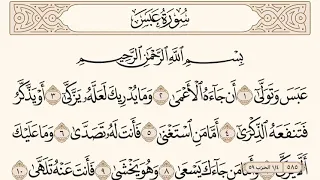 سُورَةُ عَبَسَ
بِسْمِ ٱللَّهِ ٱلرَّحْمَٰنِ ٱلرَّحِيمِ
عَبَسَ وَتَوَلَّىٰٓ ١ أَن جَآءَهُ ٱلْأَعْمَىٰ ٢ وَمَا يُدْرِيكَ لَعَلَّهُۥ يَزَّكَّىٰٓ ٣ أَوْ يَذَّكَّرُ
فَتَنفَعَهُ ٱلذِّكْرَىٰٓ ٤ أَمَّا مَنِ ٱسْتَغْنَىٰ ٥ فَأَنتَ لَهُۥ تَصَدَّىٰ ٦ وَمَا عَلَيْكَ
أَلَّا يَزَّكَّىٰ ٧ وَأَمَّا مَن جَآءَكَ يَسْعَىٰ ٨ وَهُوَ يَخْشَىٰ ٩ فَأَنتَ عَنْهُ تَلَهَّىٰ ١٠
٥٨٥ ١/٤ الحزب ٥٩